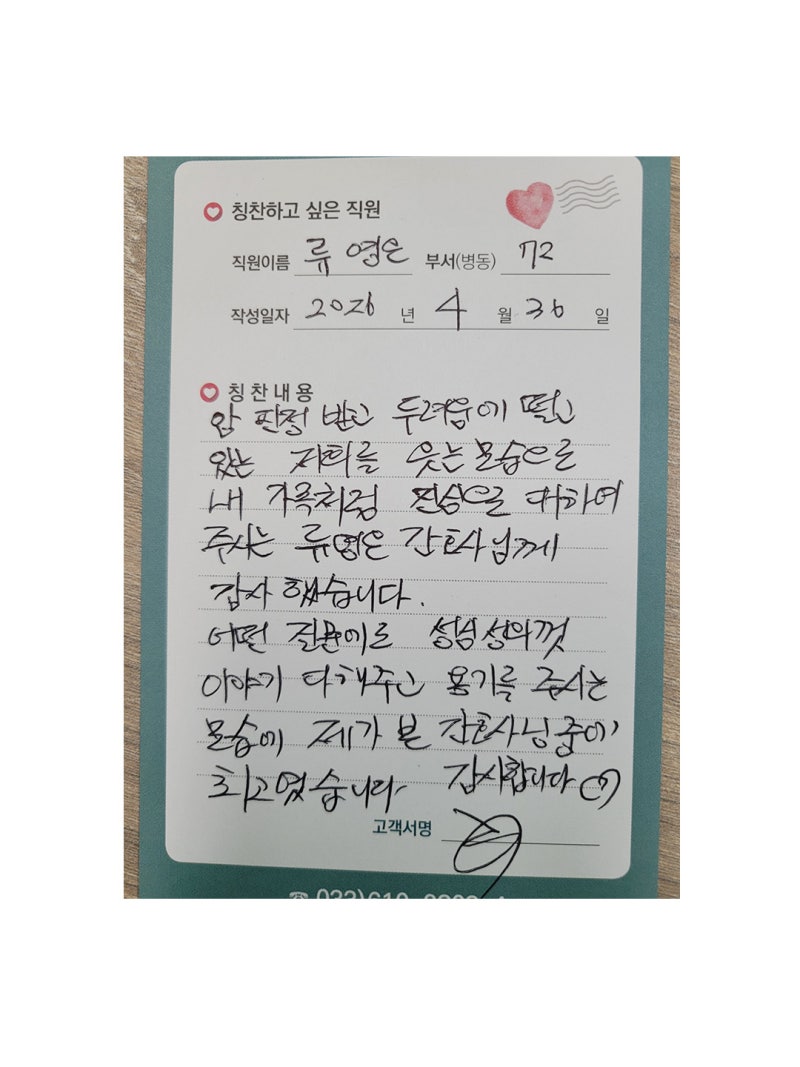 칭찬하고 싶은 직원
직원이름 류영은 부서(병동) 72
작성일자 2026 년 4 월 30 일
칭찬내용
암 판정 받고 두려움에 떨고
있는 저희를 웃는모습으로
내 가족처럼 진심으로 대하여
주시는 류영은 간호사님께
감사 했습니다.
어떤 질문에도 성심성의껏
이야기 다해주고 용기를 주시는
모습에 제가 본 간호사님 중에
최고였습니다. 감사합니다
고객서명